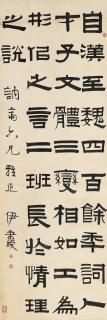 自漢至魏四百餘年詞人
才子文體三變相如工為
形似之言二班長於情理
之說 六兄雅正 伊秉綬